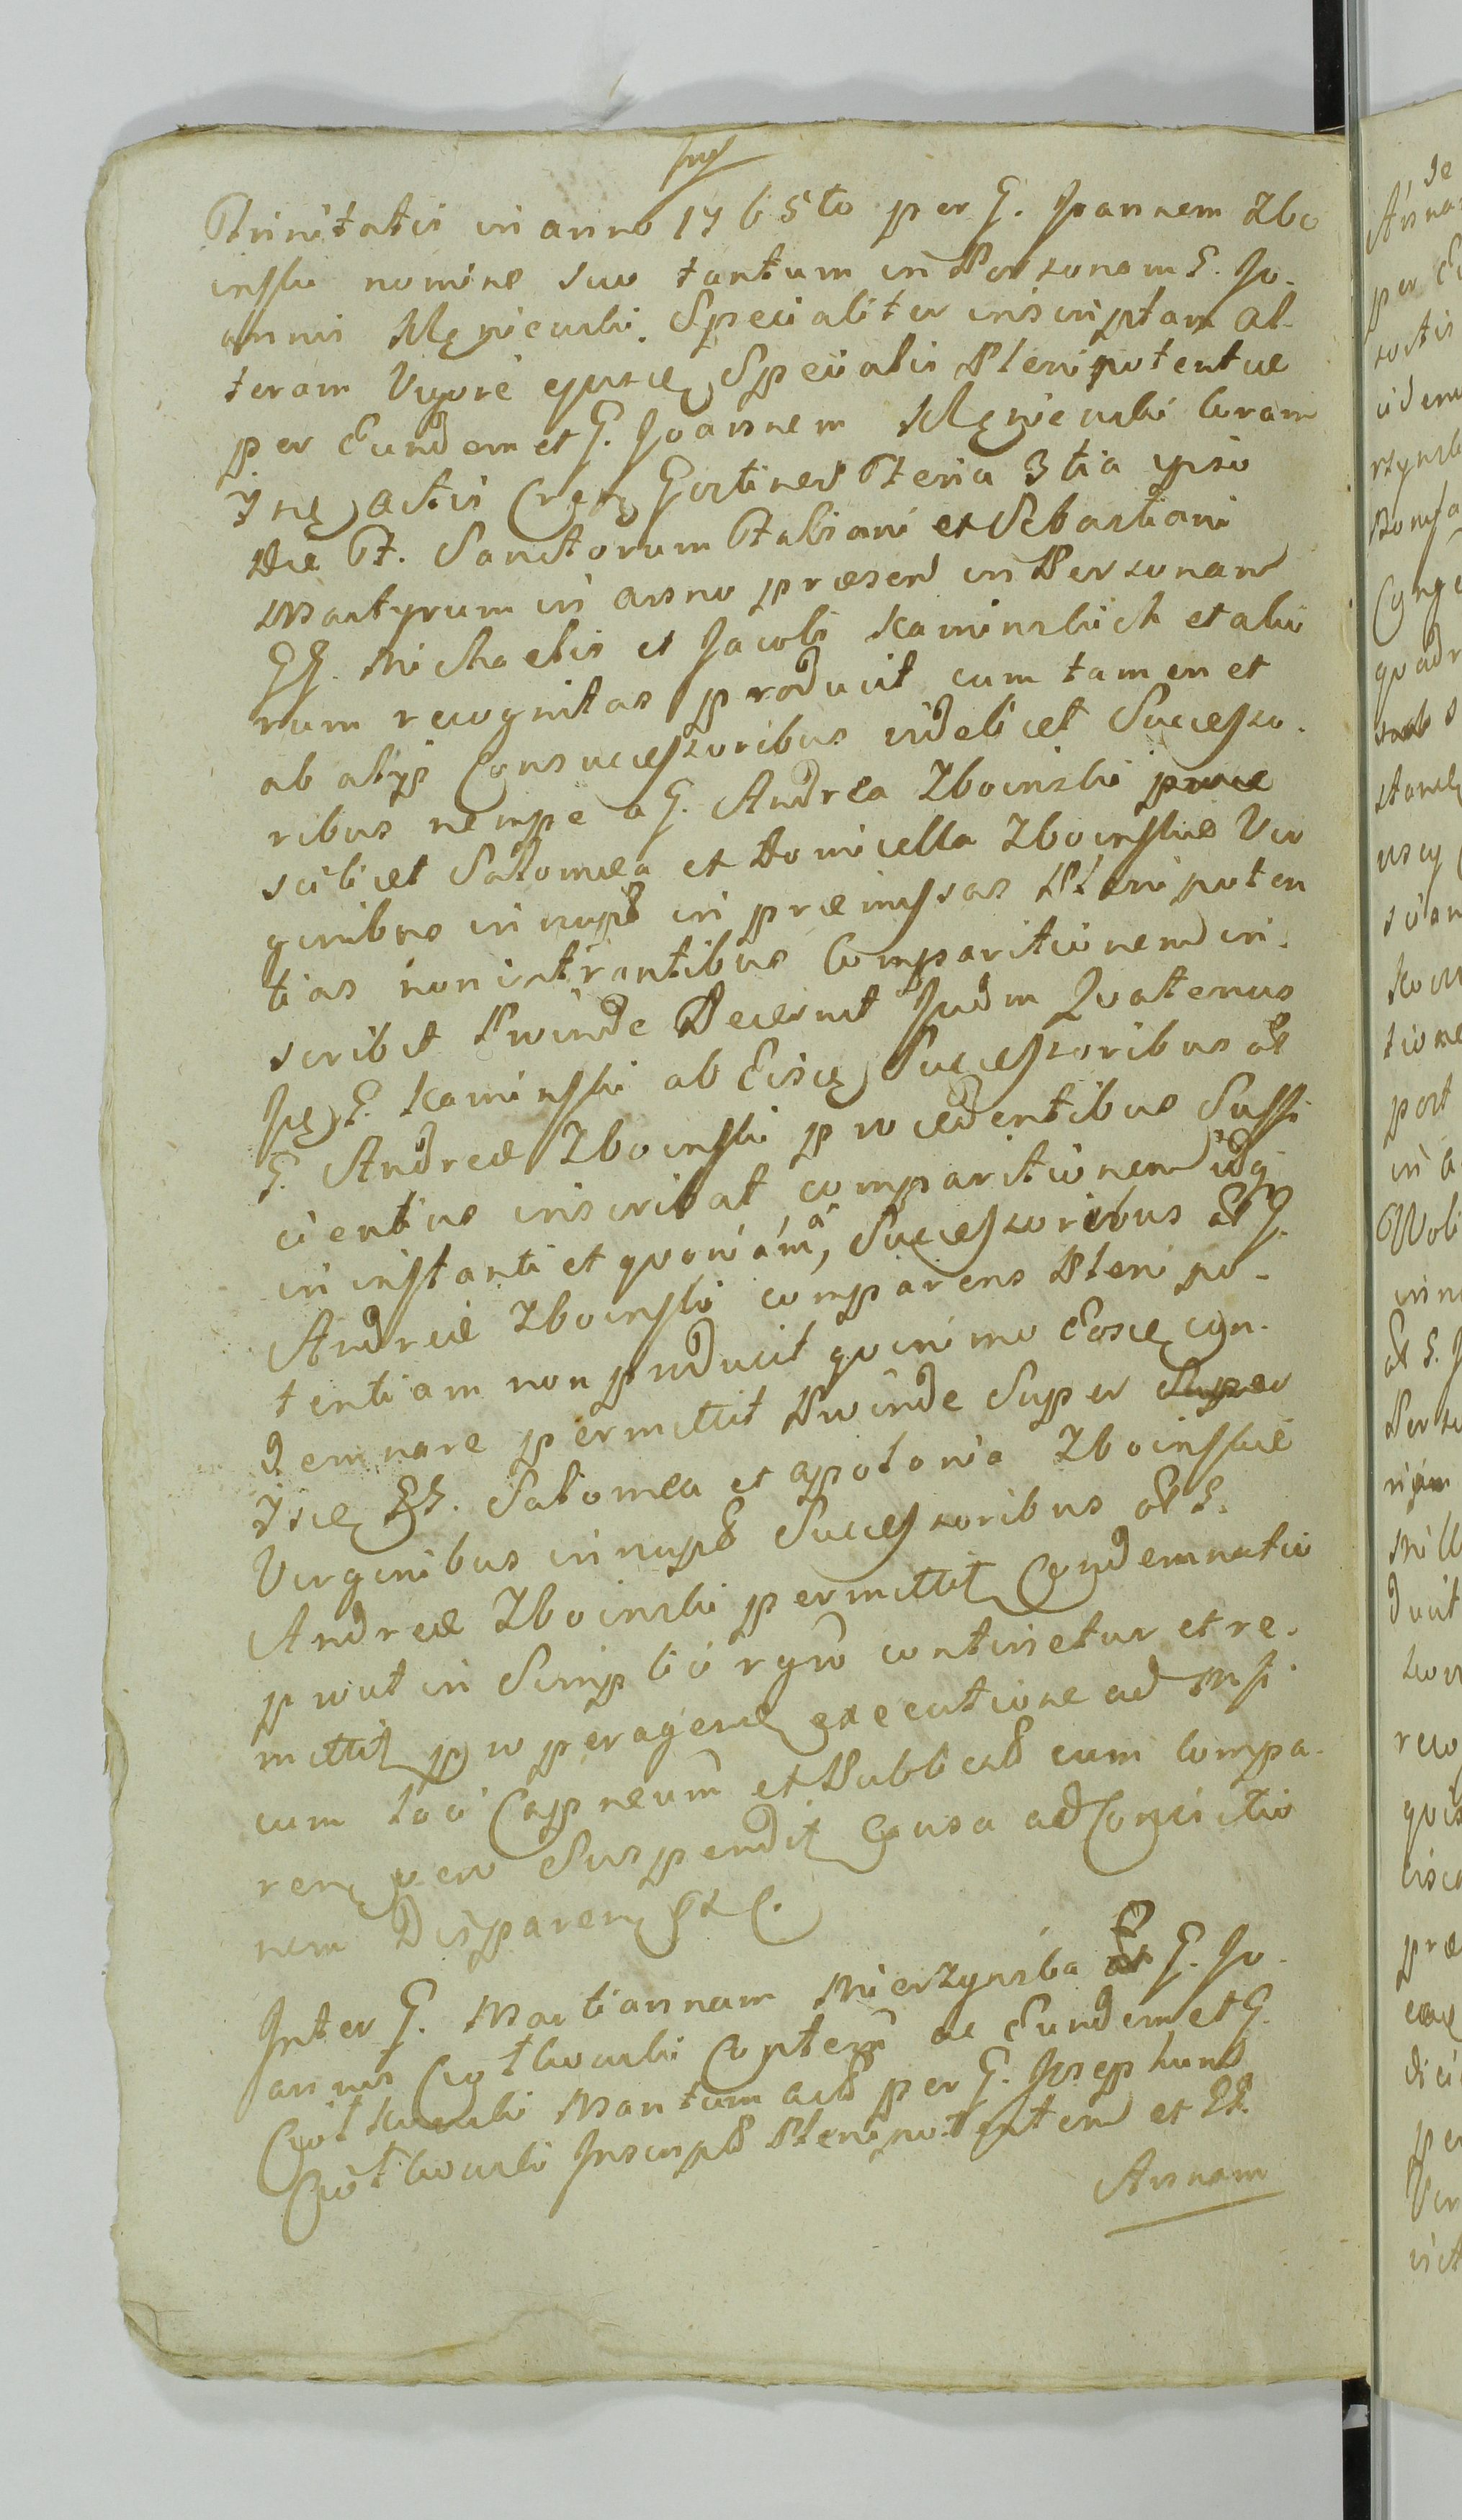 Trinitatis in anno 1765to per G. Joannem Zbo
inski nomine suo tantum in Personam G. Jo-
annis Męzieński Specialiter inscriptam al-
teram Vigore ejusd Specialis Plenipotentiæ
per Eundem et G. Joannem Męzienski Coram
Actis Gostinen Feria 3tia ipso
Die F. Sanctorum Fabiani et Sebastiani
Martyrum in anno præsen in Personam
GG. Michaelis et Jacobi Kaminskich et alio
rum recognitas producit cum tamen et
ab alijs Consuccessoribus videlicet Successo-
ribus nempe a G. Andrea Zboinski
scilicet Salomea et Domicella Zboinskie Vir
ginibus innup in præmissas Plenipoten
tias non intrantibus Comparitionem in-
scribit Proinde Decernit Judm Quatenus
G. Kaminski ab Eisd Successoribus ol
G. Andreæ Zboinski procedentibus Suffi
cientius inscribat comparitionem idq
in instanti et quoniam, a Successoribus ol G.
Andreæ Zboinski comparens Plenipo-
tentiam non producit quinimo Eosd con-
demnare permittit Proinde Super
GG. Salomea et Apolonia Zboinskie
Virginibus innup Successoribus ol G.
Andreæ Zboinski permittit Condemnatio
prout in Simplici rgro continetur et re-
mittit pro peragen executione ad Offi
cium loci Capneum et Publicad cum Compa-
ren vero Suspendit Causa ad Conscitio
nem Disparen &c.
Inter G. Mariannam Mierzynska ol G. Jo-
annis Ciołkowski Conthem ac Eundem et G.
Ciołkowski Maritum per G. Josephum
Ciołkowski Inscrip Plenipotentem et GG.
Annam